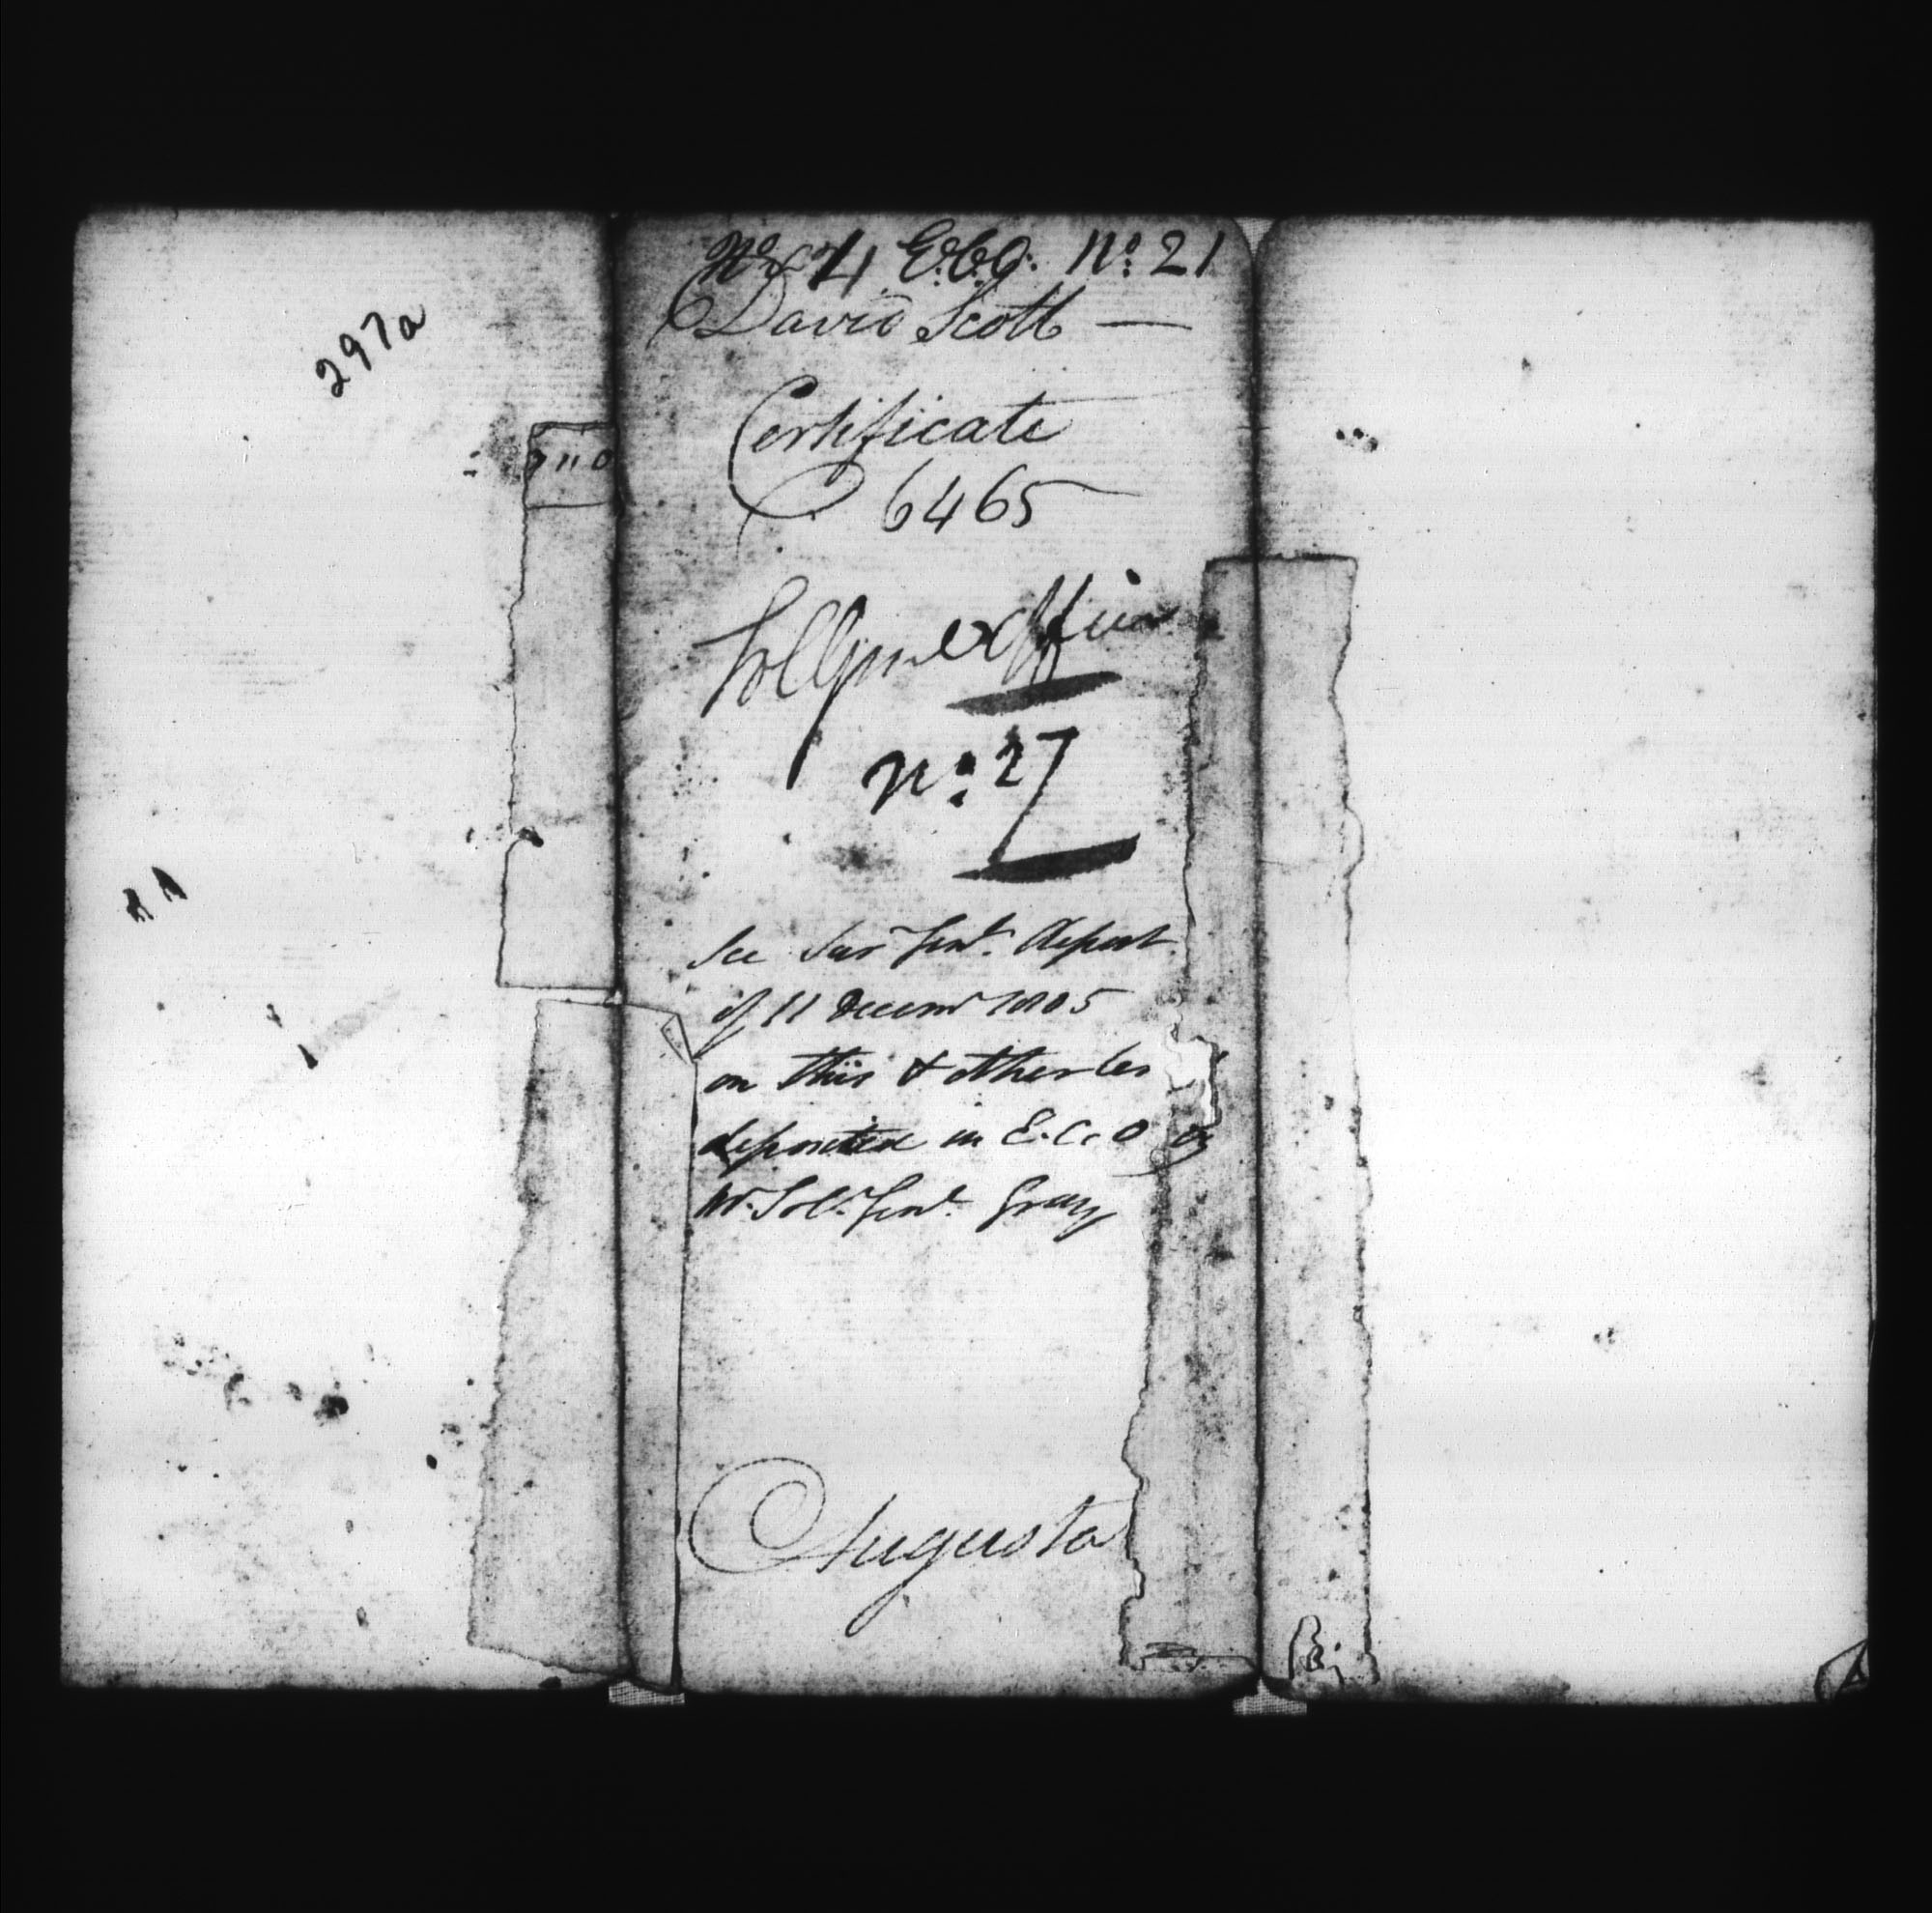 297a
No 4 E.C.O. No. 21
David Scott —
Certificate
6465
Office
No. 27
See Sur Genl. Report
of 11 Decemr 1805
on this & other Cer
deposited in E.C.O by
Mr. Sol. Genl. Gray
Augusta